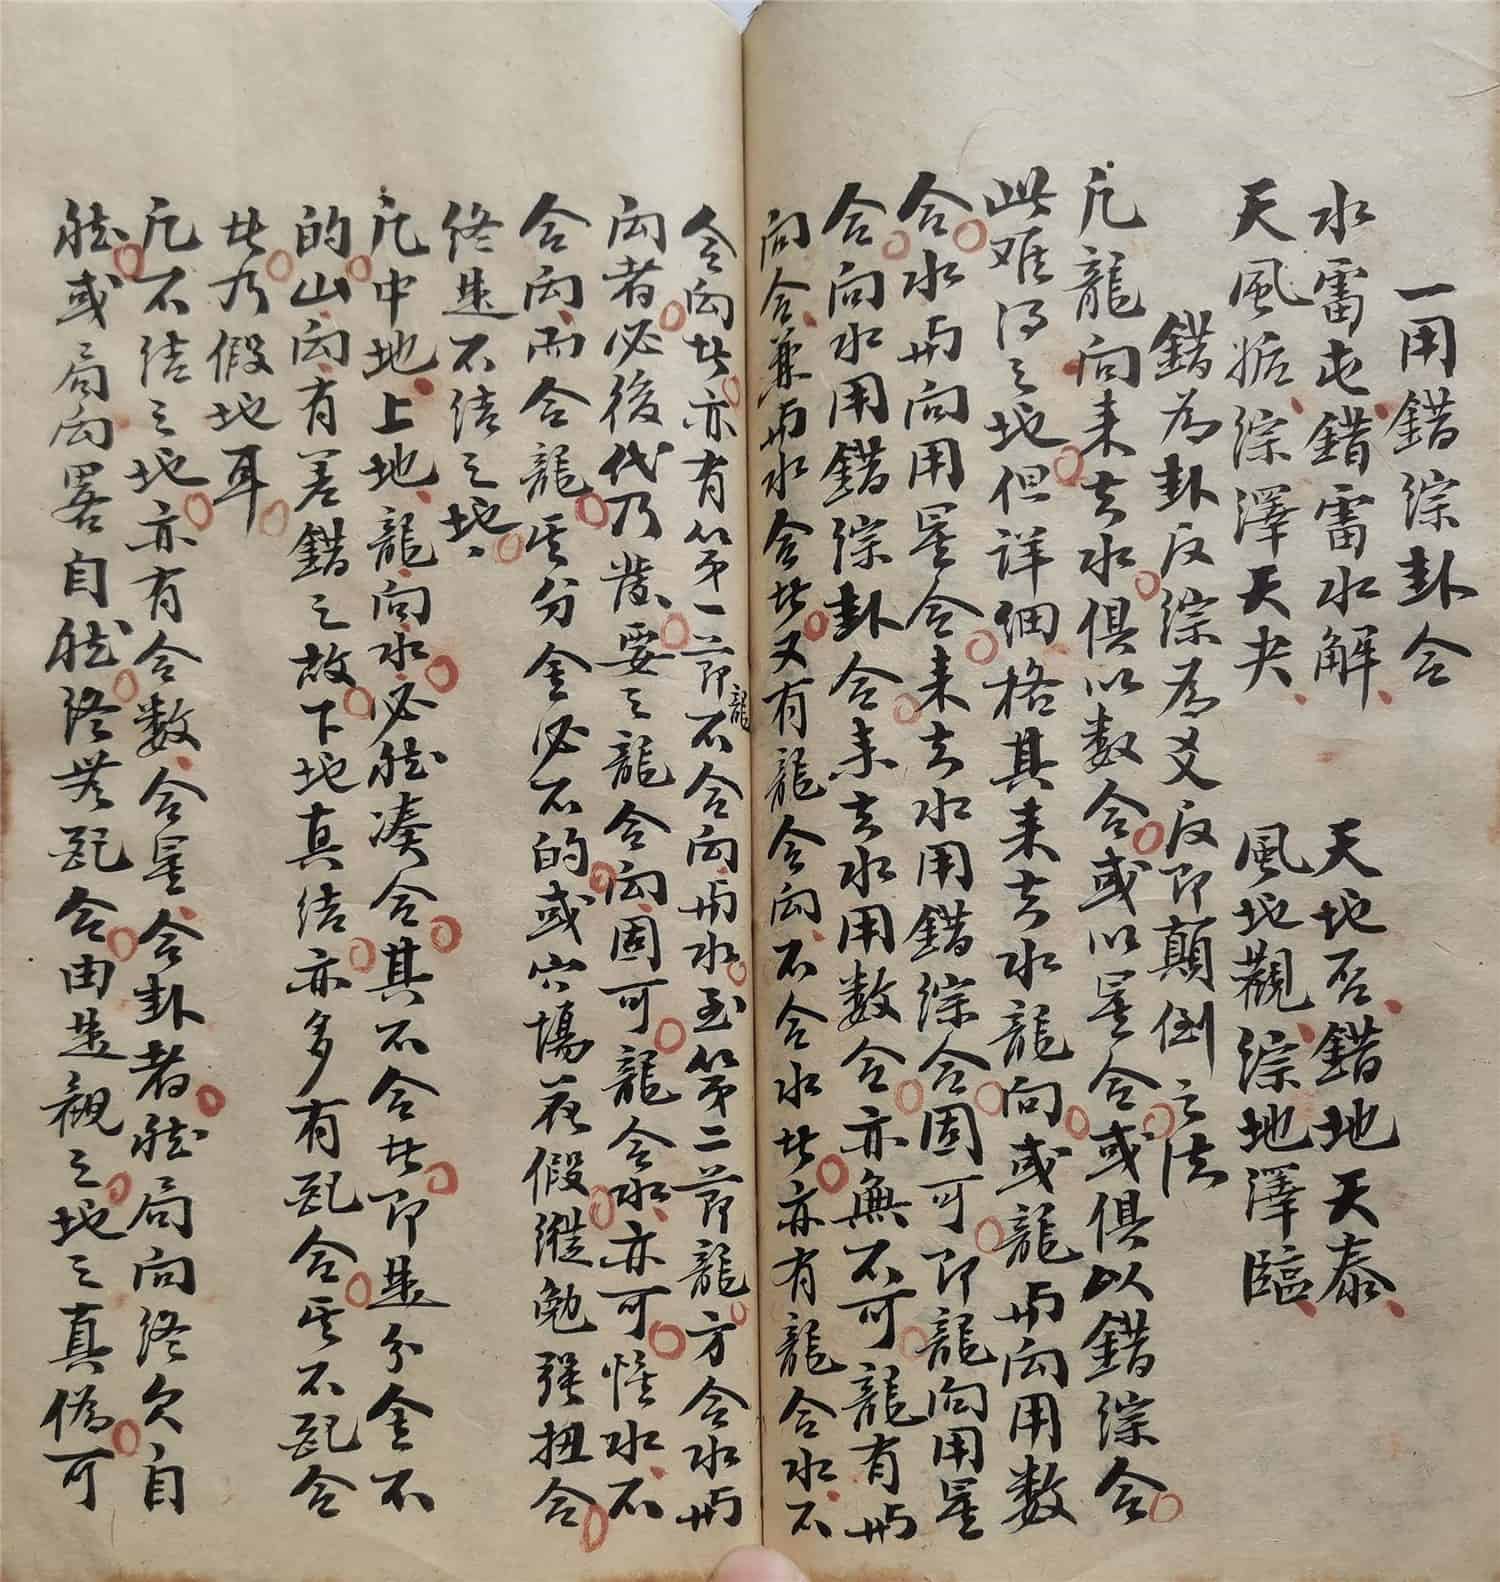 一用錯綜卦合
水雷屯錯雷水解 天地否錯地天泰
天風姤綜澤天夬 風地觀綜地澤臨
錯為卦反綜為爻反即顛倒之法
凡龍向来去水俱以數合或以星合或俱以錯綜合
此难得之地但详细格其来去水龍向或龍與向用數
合水與向用星合来去水用錯綜合固可即龍向用星
合向水用錯綜卦合来去水用數合亦無不可龍有與
向合兼與水合者又有龍合向不合水者亦有龍合水不
合向者亦有第一節龍不合向與水至第二節龍方合水與
向者必後代乃發要之龍合向固可龍合水亦可惟水不
合向而合龍其分金必不的或穴塲花假縱勉强扭合
终是不结之地
凡中地上地龍向水必然凑合其不合者即是分金不
的山向有差錯之故下地真结亦多有配合其不配合
者乃假地耳
凡不结之地亦有合數合星合卦者然局向终欠自
然或局向畧自然终無配合由是觀之地之真偽可